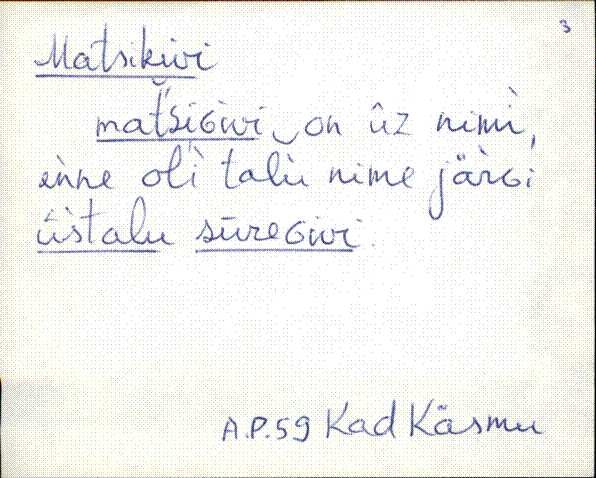 3
Matsikivi
mat̆siGivi on ûz nimì,
enne olì talù nime järGi
ûstalu sūreGivi.
A.P.59 Kad Käsmu